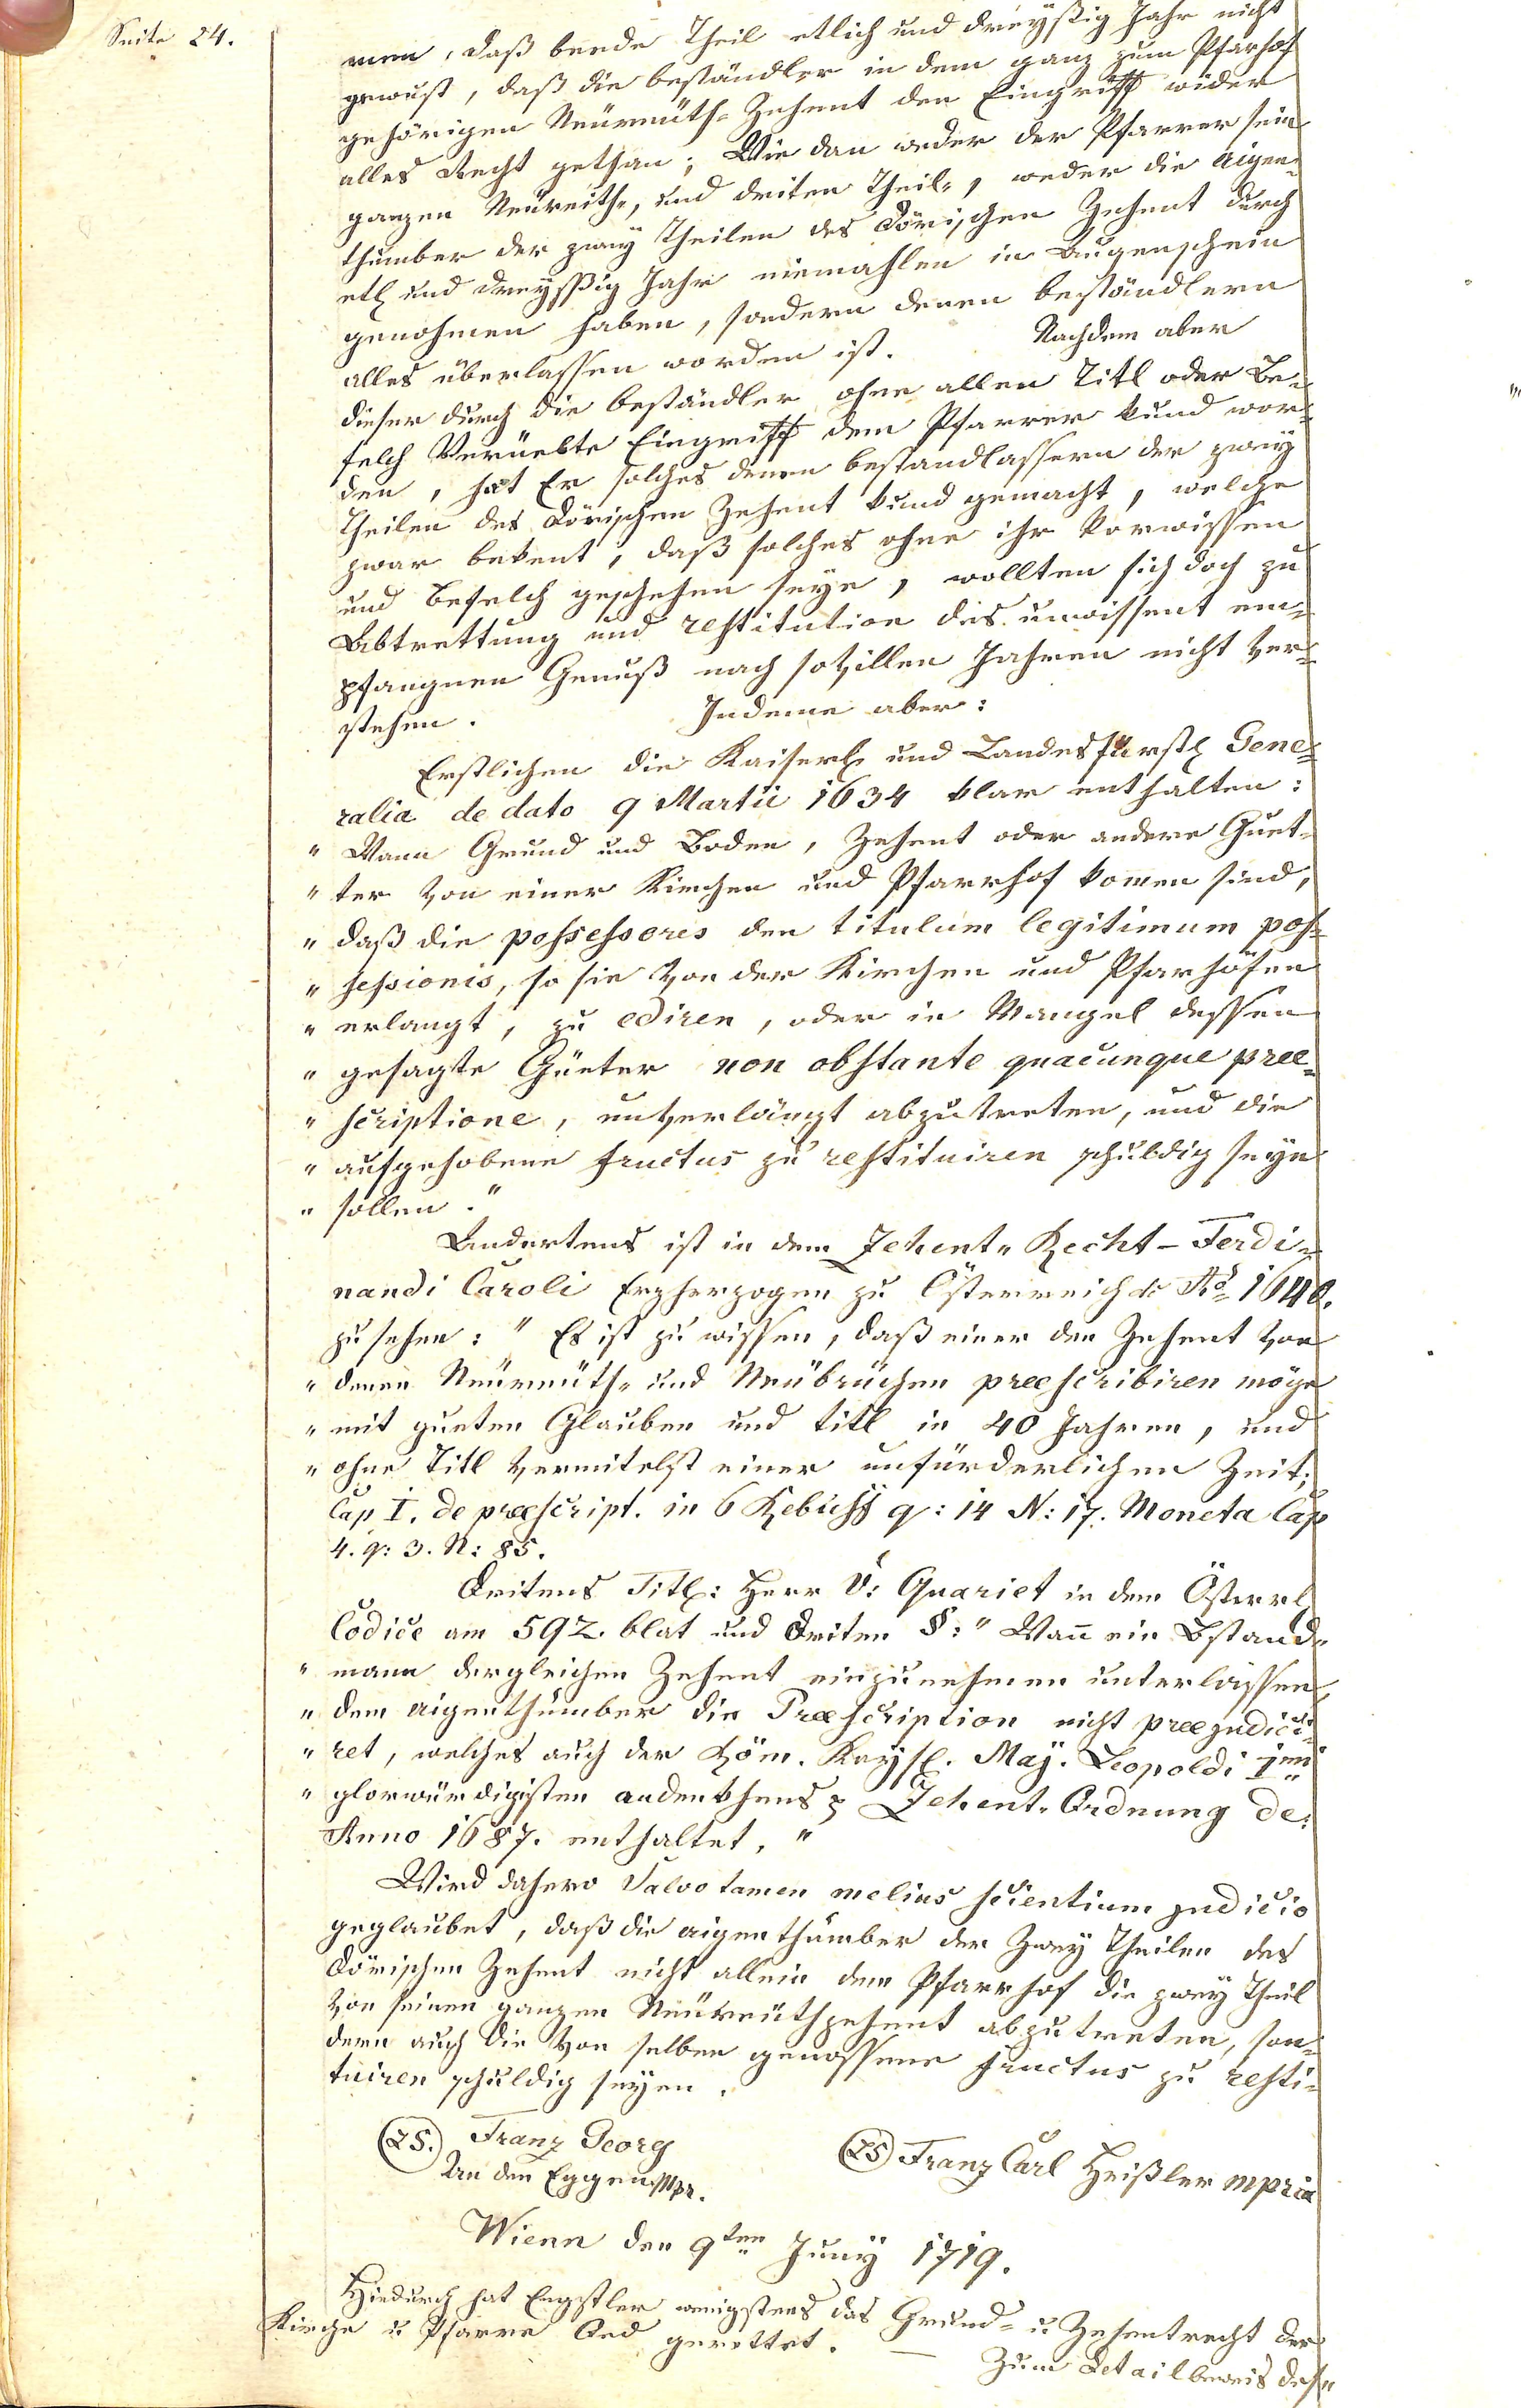 Seite 24.
men, daß beede Theil etlich und dreyßig Jahr nicht
gewust, daß die beständler in dem ganz zum Pfarhof
gehörigen Neureüth-Zehent den Eingriff wider
alles Recht gethan; Wie dan weder der Pfarrer sein
ganzen Neureith-, und driten Theil-, weder die Aigen-
thumber der zwey Theilen des Dörischen Zehent durch
etl und dreyssig Jahr niemahlen in Augenschein
genohmen haben, sondern denen beständlern
alles überlassen worden ist. Nachdem aber
dieser durch die beständler ohne allen Titl oder Be-
felch Verüebte Eingriff dem Pfarrer kund wor-
den, hat Er solches denen bestandlassern der zwey
Theilen des Dörischen Zehent kund gemacht, welche
zwar bekent, daß solches ohne ihr Vorwissen
und Befelch geschehen seye, wollten sich doch zu
Abtrettung und restitution des unwissent em-
pfangnen Genuß nach sovillen Jahren nicht ver-
stehen. Indeme aber:
Erstlichen die Kaiserl und Landesfürstl Gene-
ralia de dato 9 Martii 1634 klar enthalten:
" Wann Grund und Boden, Zehent oder andere Guet-
" ter von einer Kirchen und Pfarrhof komen sind,
" daß die possessores den titulum legitimum pos-
" sessionis, so sie von der Kirchen und Pfarhöfen
" erlangt, zu ediren, oder in Mangel dessen
" gesagte Güeter non obstante quacunque prae-
" scriptione, unverlängt abzutreten, und die
" aufgehobene fructus zu restituiren schuldig seyn
" sollen."
Andertens ist in dem Zehent-Recht-Ferdi-
nandi Caroli Erzherzogen zu Österreich de Ao 1648.
zu sehen: " Es ist zu wissen, daß einer den Zehent von
" denen Neüreüth- und Neübrüchen praescribiren möge
" mit gueten Glauben und titl in 40 Jahren, und
" ohne Titl vermitelst einer unfürderlichen Zeit;
Cap I. de praescript. in 6 Rebuff q: 14 N: 17. Moneta Cap
4. q: 3. N: 85.
Dritens Titl: Herr V: Guariet in dem Österrl
Codice am 592. blat und driten §: " Wan̄ ein Bstand-
" mann dergleichen Zehent einzunehmen unterlassen,
" dem aigenthumber die Praescription nicht praejudici-
" ret, welches auch der Röm. Kaysl. Maÿ. Leopoldi Imi
" glorwürdigsten andenkhens Zehent-Ordnung de
Anno 1687. enthaltet."
Wird dahero Salvo tamen melius scientium judicio
geglaubet, daß die aigenthumber der Zwey Theilen des
Dörischen Zehent nicht allein dem Pfarrhof die zwey Theil
von seinen ganzen Neureüthzehent abzutreten, son-
dern auch die von selben genossene fructus zu resti-
tuiren schuldig seyen.
(LS.) Franz Georg (LS) Franz Carl Heißler mpria
An den Eggen Mpr.
Wienn den 9ten Juny 1719.
Hiedurch hat Engstler wenigstens das Grund- u Zehentrecht der
Kirche u Pfarre Oed gerettet. — Zum Detailbeweis dess-